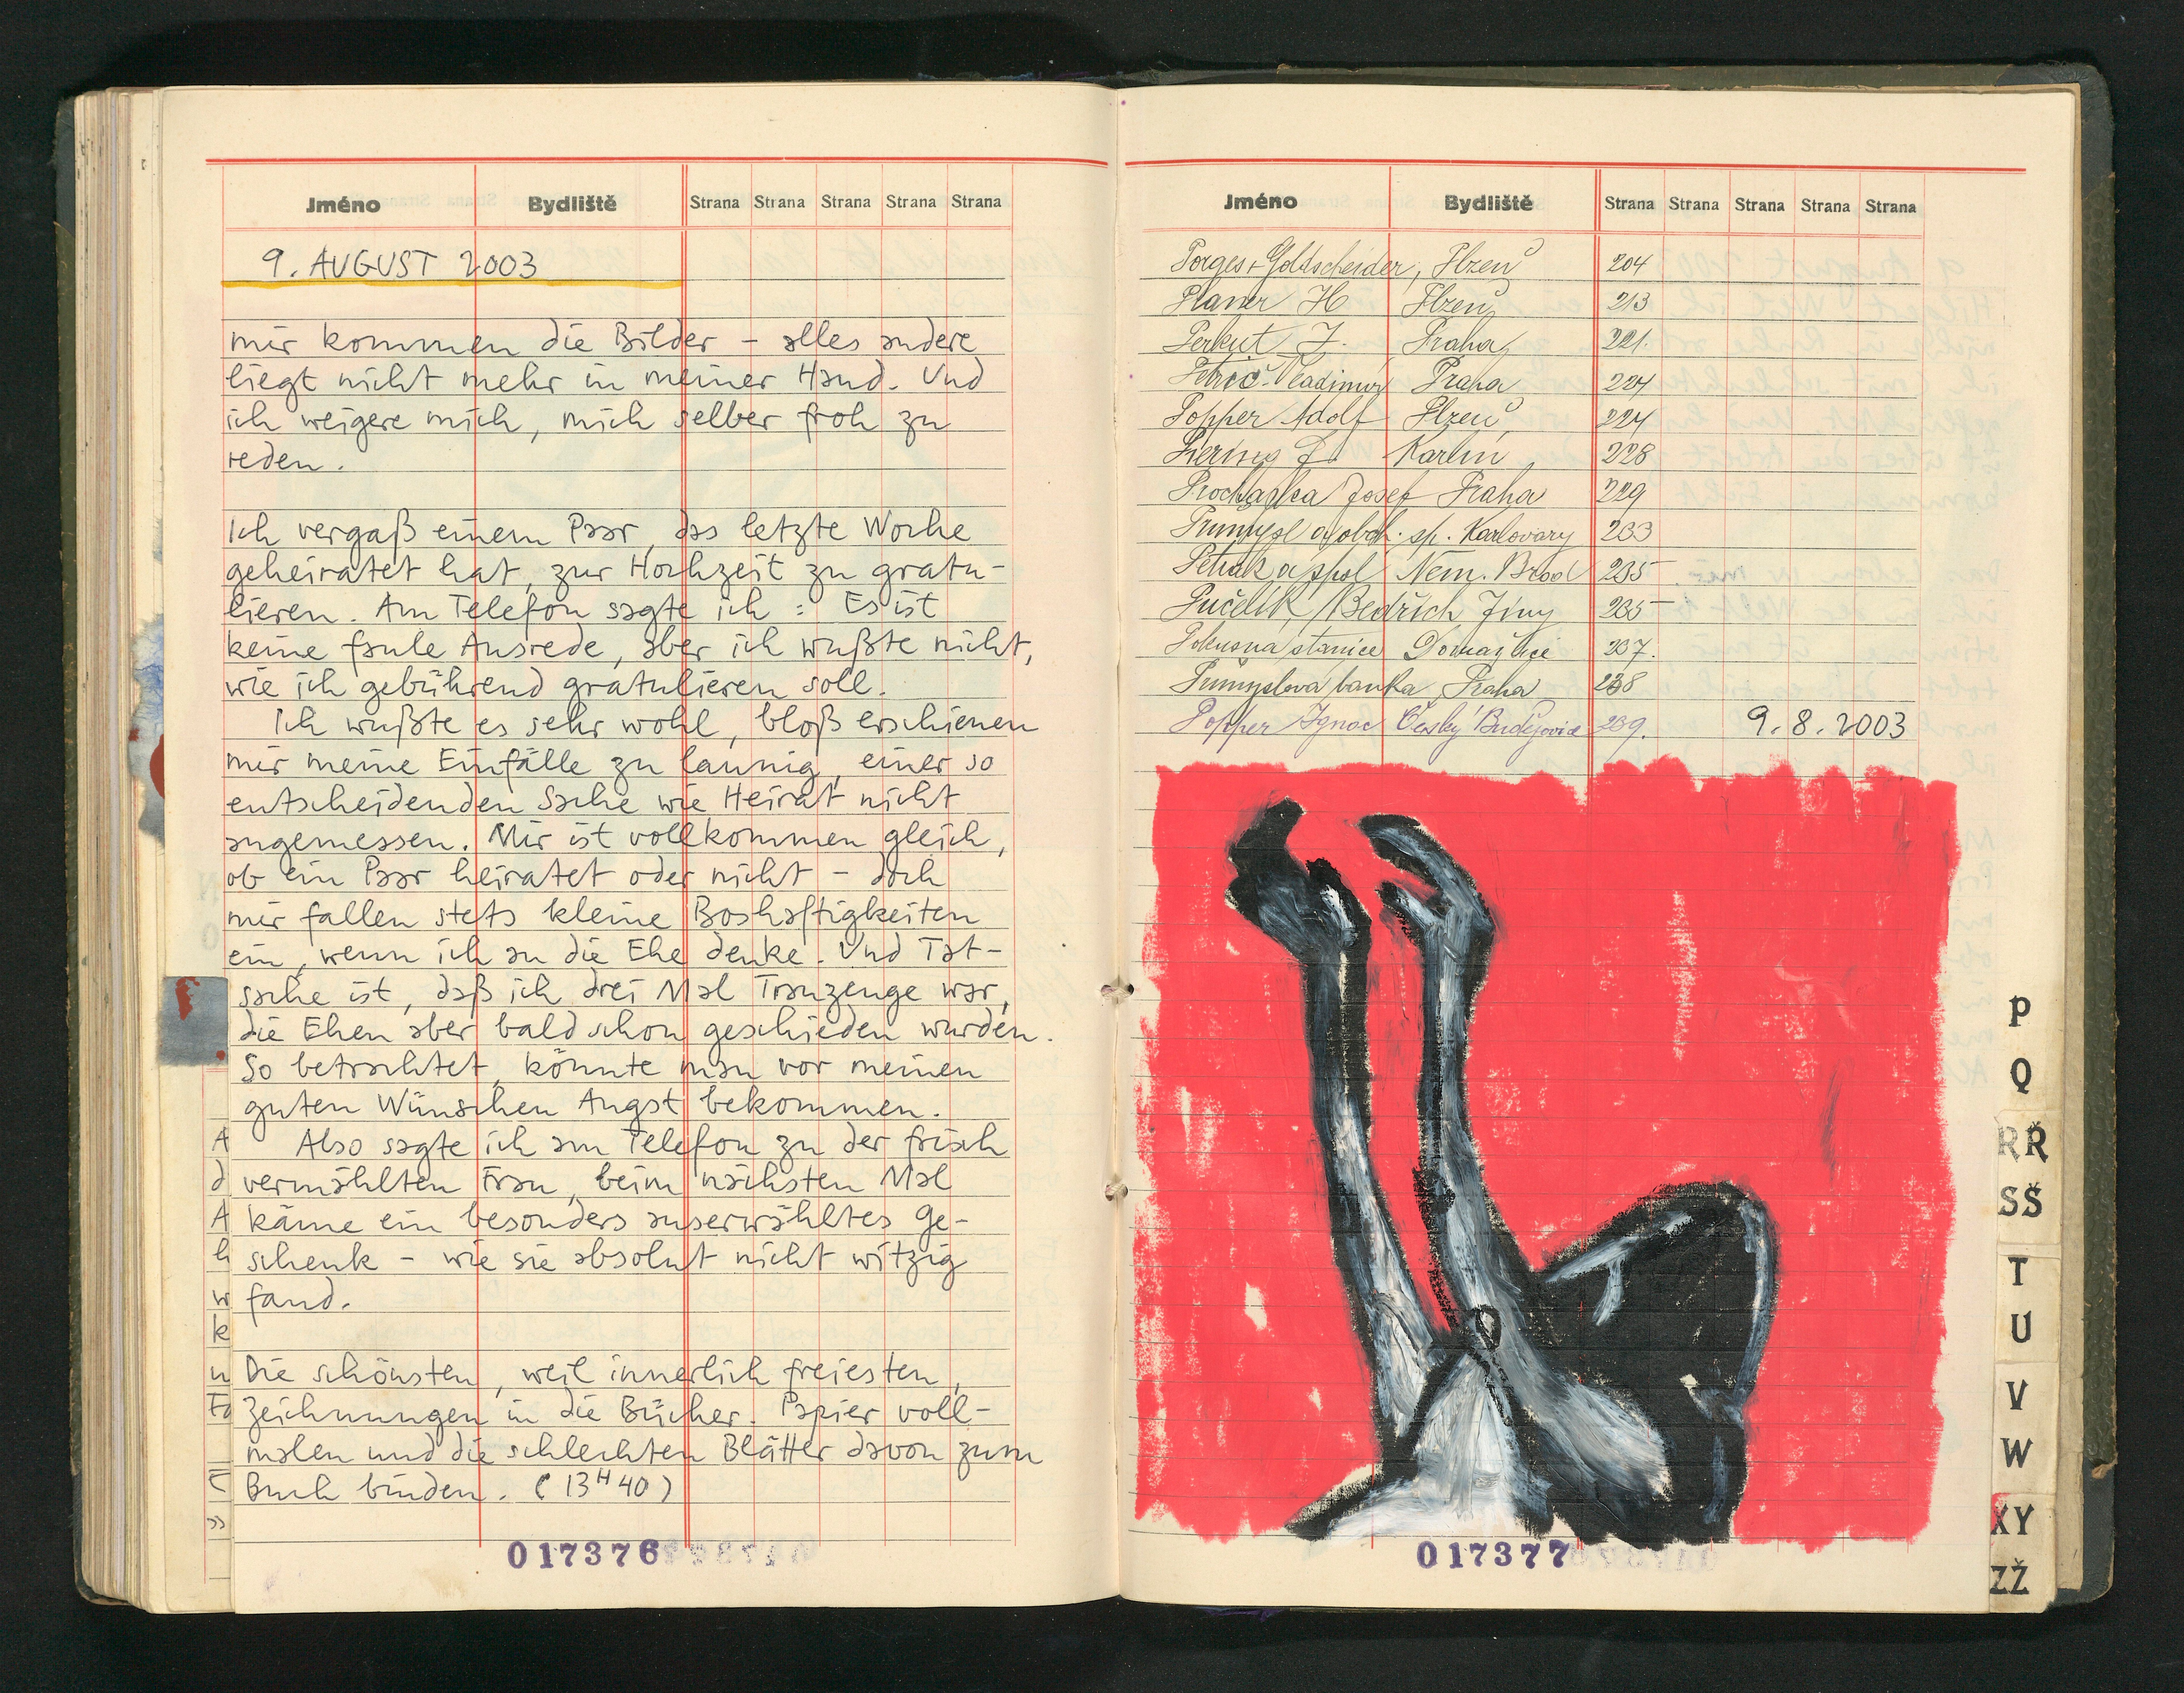 Jméno Bydliště Strana Strana Strana Strana Strana
9. AUGUST 2003
mir kommen die Bilder – alles andere
liegt nicht mehr in meiner Hand. Und
ich weigere mich, mich selber froh zu
reden.
Ich vergaß einem Paar, das letzte Woche
geheiratet hat, zur Hochzeit zu gratu-
lieren. Am Telefon sagte ich: Es ist
keine faule Ausrede, aber ich wußte nicht,
wie ich gebührend gratulieren soll.
Ich wußte es sehr wohl, bloß erschienen
mir meine Einfälle zu launig, einer so
entscheidenden Sache wie Heirat nicht
angemessen. Mir ist vollkommen gleich,
ob ein Paar heiratet oder nicht – doch
mir fallen stets kleine Boshaftigkeiten
ein, wenn ich an die Ehe denke. Und Tat-
sache ist, daß ich drei Mal Trauzeuge war,
die Ehen aber bald schon geschieden wurden.
So betrachtet, könnte man vor meinen
guten Wünschen Angst bekommen.
Also sagte ich am Telefon zu der frisch
vermählten Frau, beim nächsten Mal
käme ein besonders auserwähltes Ge-
schenk – wie sie absolut nicht witzig
fand.
Die schönsten, weil innerlich freiesten,
Zeichnungen in die Bücher. Papier voll-
malen und die schlechten Blätter davon zum
Buch binden. (13H40)
017376
Jméno Bydliště Strana Strana Strana Strana Strana
Porges & Goldscheider, Plzeň 204
Planer H Plzeň 213
Perkut J. Praha 221.
Petrič Vladimír Praha 224
Popper Adolf Plzeň 224
J. Karlín 228
Procházka Josef Praha 229
Průmysl a obch. sp. Karlovary 233
Peták a spol Něm. Brod 235
Pučelík Bedřich Jíny 235
Pokusná stanice Domažlice 237.
Průmyslová banka Praha 238
Popper Ignac Český Budějovice 239. 9.8.2003
017377
P
Q
RŘ
SŠ
T
U
V
W
XY
ZŽ